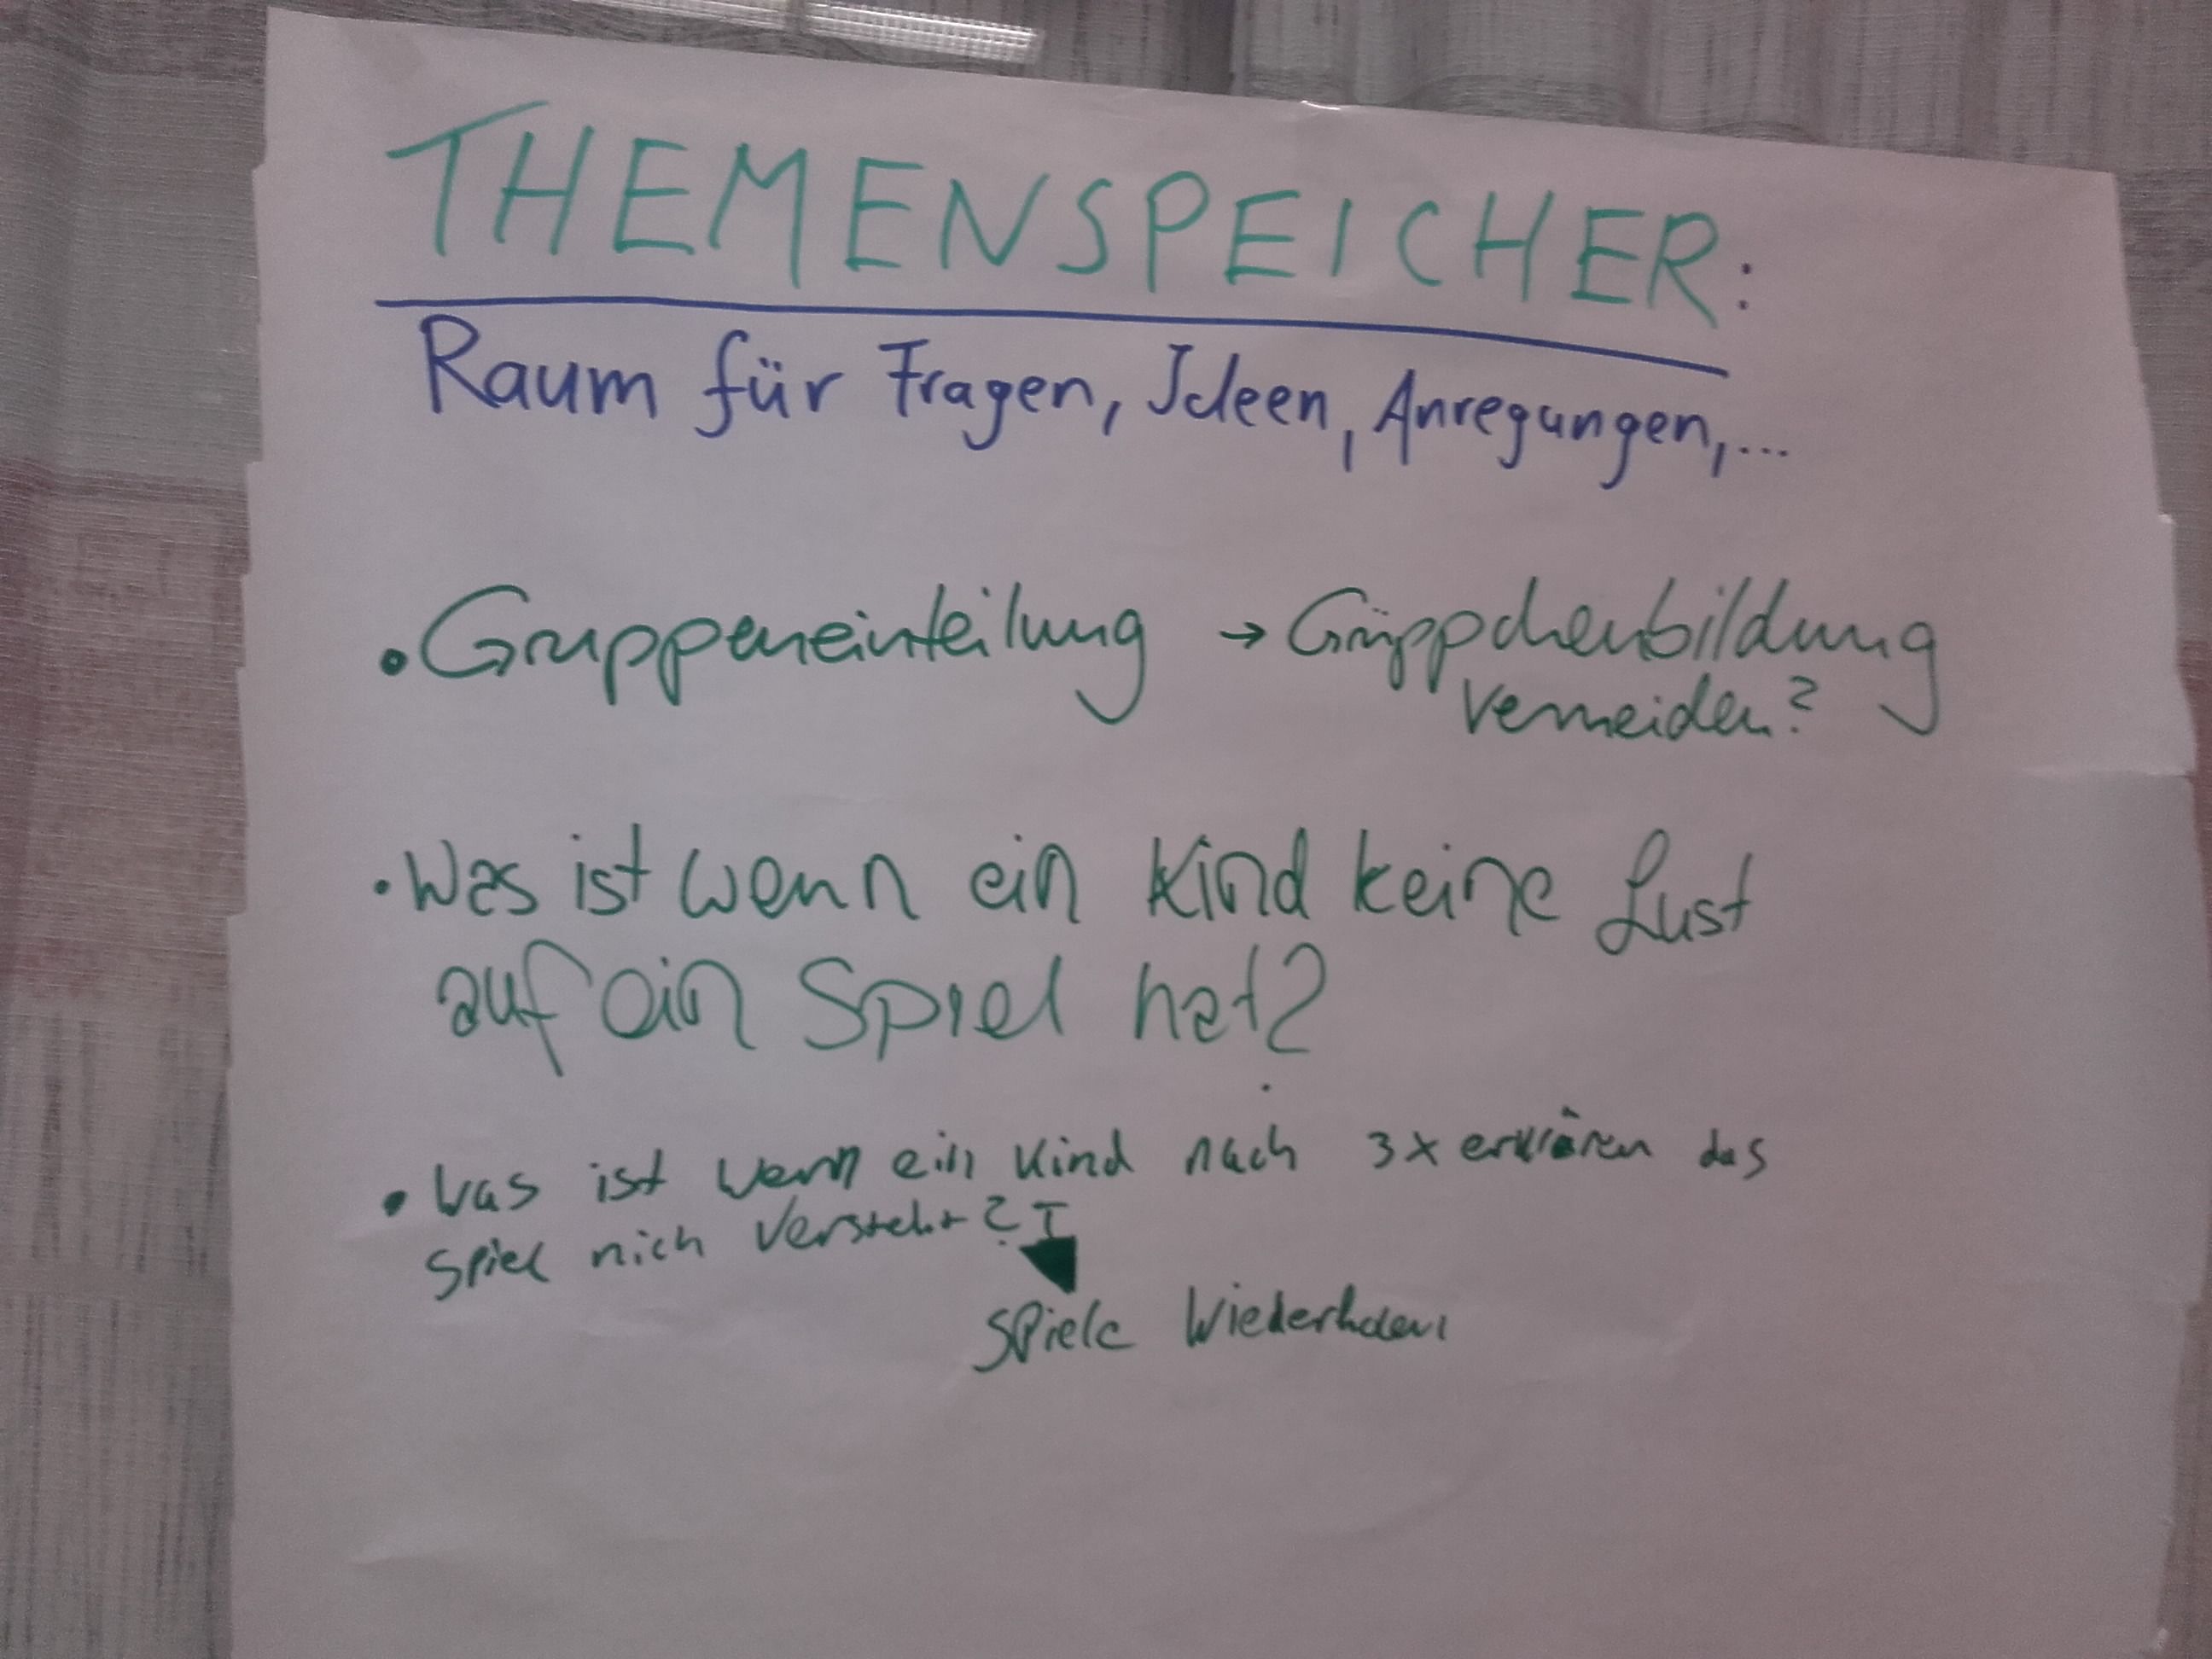 THEMENSPEICHER:
Raum für Fragen, Ideen, Anregungen,...
• Gruppeneinteilung → Grüppchenbildung
vermeiden?
• Was ist wenn ein Kind keine Lust
auf ein Spiel hat?
• Was ist wenn ein Kind nach 3x erklären das
Spiel nich versteht?
Spiele Wiederholen